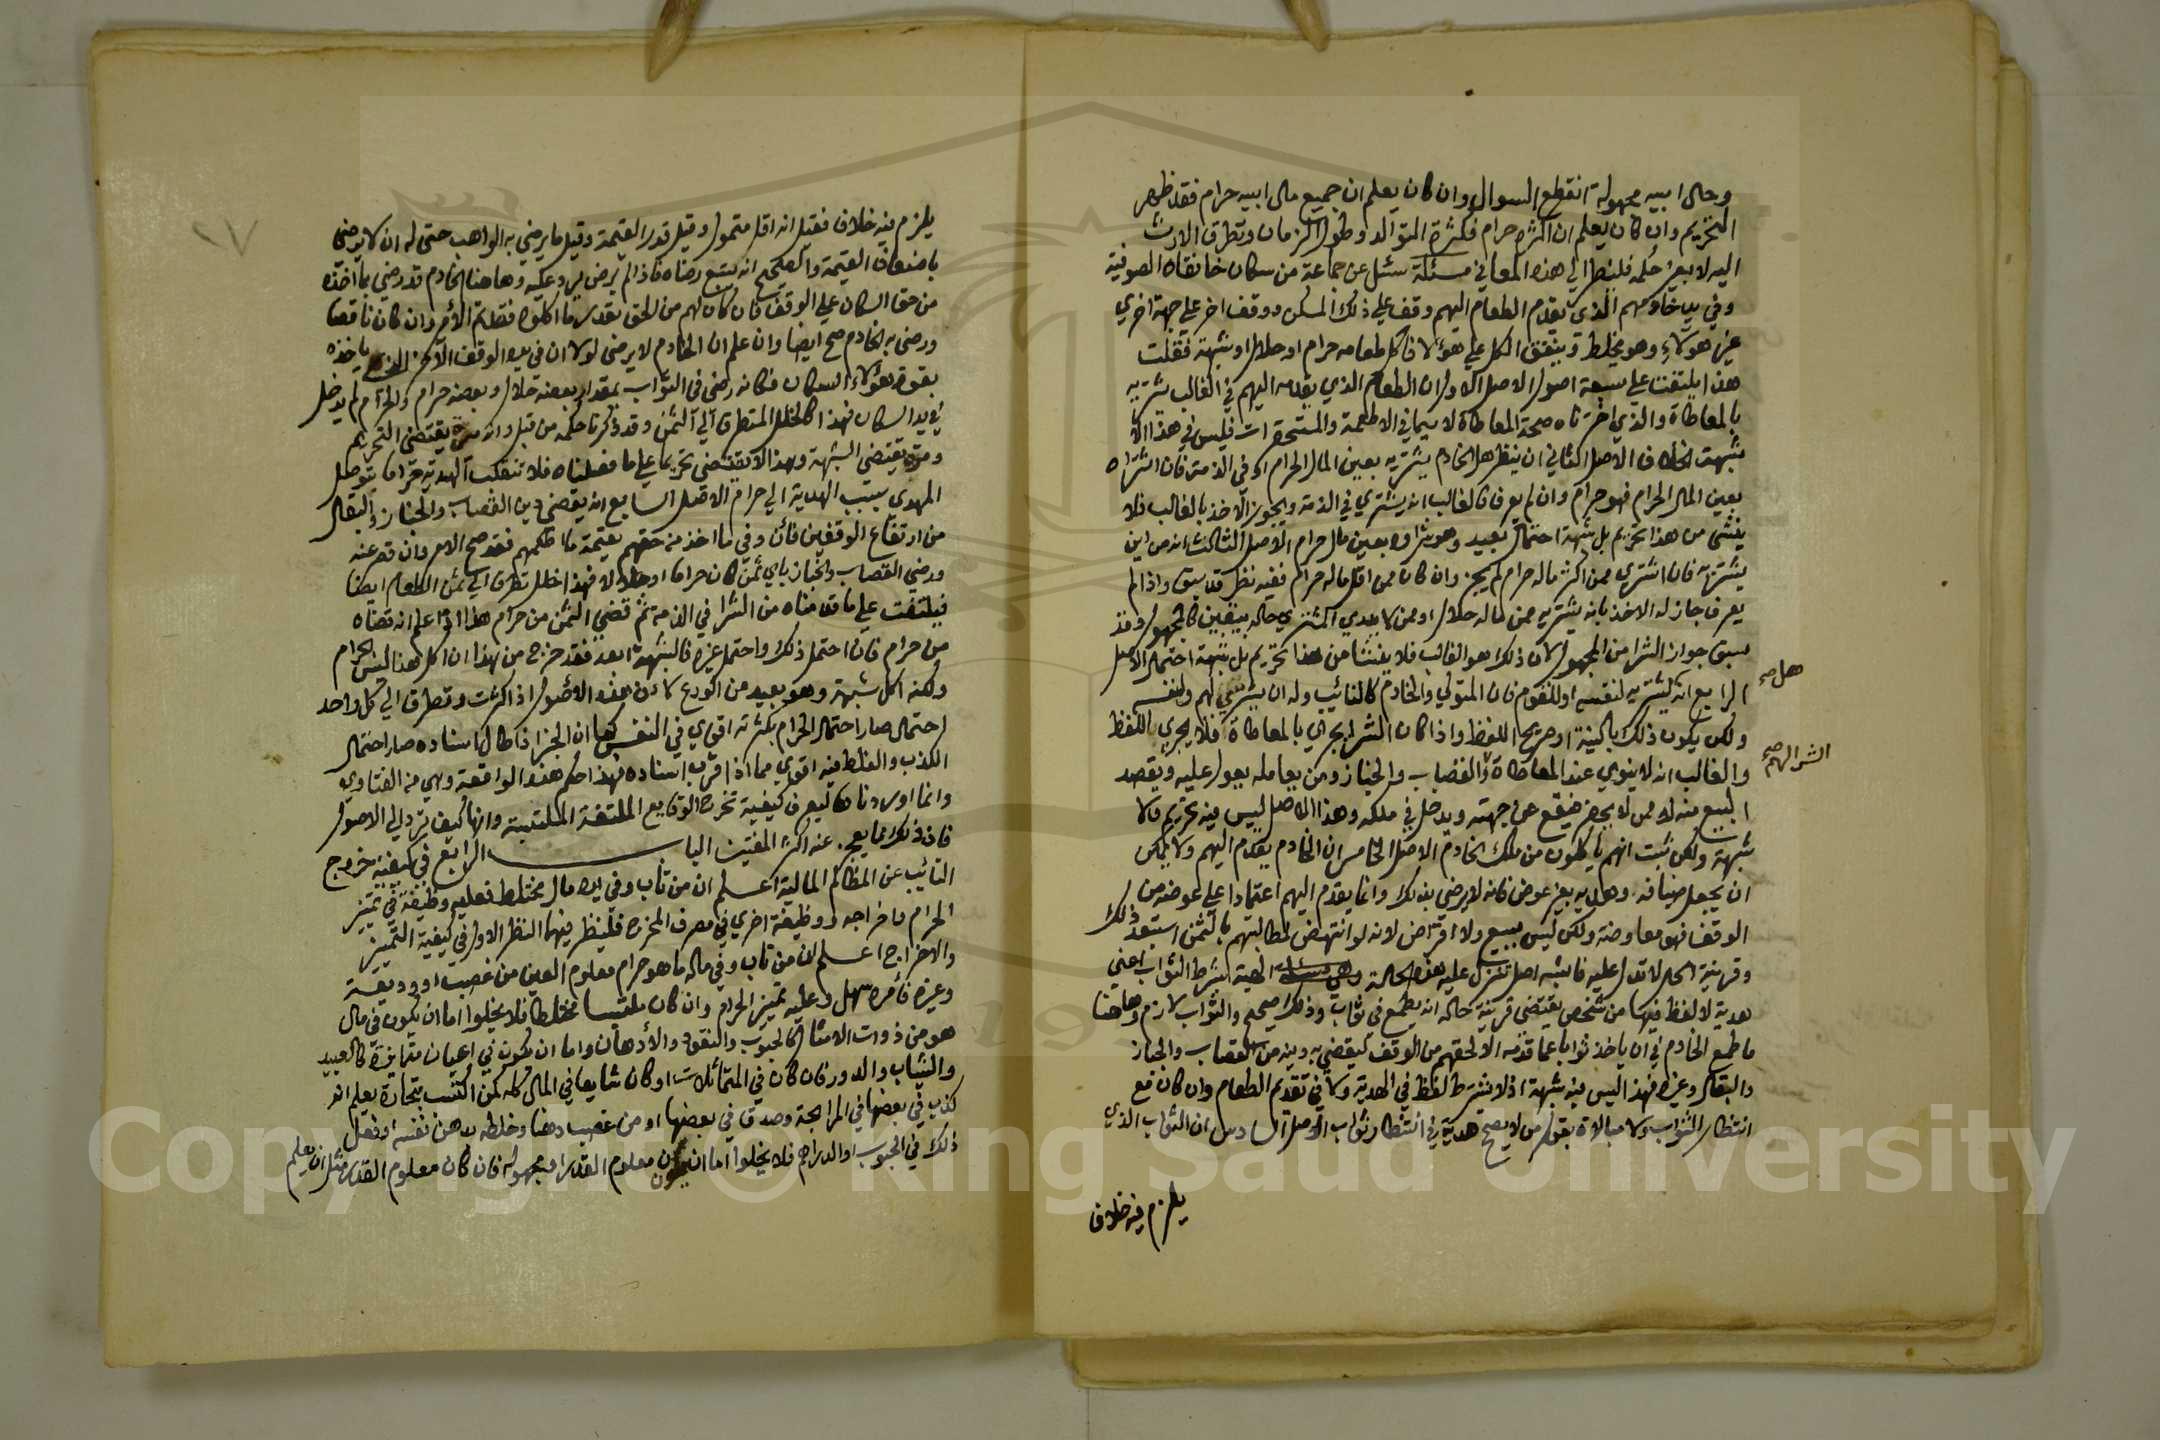 وحال ابيه مجهولة انقطع السوال وان كان يعلم ان جميع مال ابيه حرام فقد ظهر
التحريم وان كان يعلم ان اكثره حرام فكثرة التوالد وطول الزمان وتطرق الارث
اليه لا يغير حكمه فلينظر الي هذه المعاني مسئلة سئل عن جماعة من سكان خانقاه الصوفية
وفي يد خادمهم الذي يقدم الطعام اليهم وقف علي ذلك المسكن ووقف اخر علي جهة اخري
غير هولاء وهو يخلط وينفق الكل علي هولا فاكل طعامه حرام او حلال او شبهة فقلت
هذا يلتفت علي سبعة اصول الاصل الاول ان الطعام الذي يقدمه اليهم في الغالب يشتريه
بالمعاطاة والذي اخترناه صحة المعاطاة لا سيما في الاطعمة والمستحقرات فليس في هذا الا
شبهة الخلاف الاصل الثاني ان ينظر هل الخادم يشتريه بعين المال الحرام او في الذمة فان اشتراه
بعين المال الحرام فهو حرام وان لم يعرف فالغالب انه يشتري في الذمة ويجوز الاخذ بالغالب فلا
ينشئ من هذا تحريم بل شبهة احتمال بعيد وهو شراوه بعين مال حرام الاصل الثالث انه من اين
يشتريه فان اشتري ممن اكثر ماله حرام لم يجز وان كان ممن اقل ماله حرام ففيه نظر قد سبق واذا لم
يعرف جاز له الاخذ بانه يشتريه ممن ماله حلال او ممن لا يدري المشتري حاله بيقين كالمجهول وقد
سبق جواز الشرا من المجهول لان ذلك هو الغالب فلا ينشئا من هذا تحريم بل شبهة احتمال الاصل
الرابع انه يشتريه لنفسه او للقوم فان المتولي والخادم كالنائب وله ان يشتري لهم ولنفسه
ولكن يكون ذلك بالنية او صريح اللفظ واذا كان الشرا يجري بالمعاطاة فلا يجري اللفظ
والغالب انه لا ينوي عند المعاطاة والقصاب والخباز ومن يعامله يعول عليه ويقصد
البيع منه لا ممن لا يحضر فيقع عن جهته ويدخل في ملكه وهذا الاصل ليس فيه تحريم ولا
شبهة ولكن ثبت انهم ياكلون من ملك الخادم الاصل الخامس ان الخادم يقدم اليهم ولا يمكن
ان يجعل ضيافة وهدية بغير عوض فانه لا يرضي بذلك وانما يقدم اليهم اعتمادا علي عوضه من
الوقف فهو معاوضة ولكن ليس ببيع ولا اقراض لانه لو انتهض لمطالبتهم بالثمن استبعد ذلك
وقرينة الحال لا تدل عليه فاشبه اصل تنزل عليه هذه الحالة الهبة بشرط الثواب اعني
هدية لا لفظ فيها من شخص يقتضي قرينة حاله انه يطمع في ثواب وذلك صحيح والثواب لازم وهاهنا
ما طمع الخادم في ان ياخذ ثوابا عما قدمه الا لحقهم من الوقف ليقضي به دينه من القصاب والخباز
والبقال وغيره فهذا ليس فيه شبهة اذ لا يشترط لفظ في الهدية ولا في تقديم الطعام وان كان مع
انتظار الثواب ولا مبالاة بقول من لا يصحح هدية في انتظار ثواب الاصل السادس ان الثواب الذي
يلزم فيه خلاف
هل صح
الشر الهم صح
٢٧
يلزم فيه خلاف فقيل انه اقل متمول وقيل قدر القيمة وقيل ما يرضي به الواهب حتي له ان لا يرضي
باضعاف القيمة والصحيح انه يتبع رضاه فاذا لم يرض يرد عليه وهاهنا الخادم قد رضي بما اخذه
من حق السكان علي الوقف فان كان لهم من الحق بقدر ما اكلوه فقد تم الامر وان كان ناقصا
ورضي به الخادم صح ايضا وان علم ان الخادم لا يرضي لولا ان في يده الوقف الاخر الذي ياخذه
بقوة هؤلاء السكان فكانه رضي في الثواب بمقدار بعضه حلال وبعضه حرام والحرام لم يدخل
في يد السكان فهذا كالخلل المتطرق الي الثمن وقد ذكرنا حكمه من قبل وانه مرة يقتضي التحريم
ومرة يقتضي الشبهة وهذا لا يقتضي تحريما علي ما فصلناه فلا تنقلب الهدية حراما بتوصل
المهدي بسبب الهدية الي حرام الاصل السابع انه يقضي دين القصاب والخباز والبقال
من ارتفاع الوقفين فان وفي ما اخذ من حقهم بقيمة ما اطعمهم فقد صح الامر وان قصر عنه
ورضي القصاب والخباز باي ثمن كان حراما او حلالا فهذا خلل تطرق الي ثمن الطعام ايضا
فيلتفت علي ما قدمناه من الشرا في الذمة ثم قضي الثمن من حرام هذا اذا علم انه قضاه
من حرام فان احتمل ذلك واحتمل غيره فالشبهة ابعد فقد خرج من هذا ان اكل هذا ليس بحرام
ولكنه اكل شبهة وهو بعيد من الورع لان هذه الاصول اذا كثرت وتطرق الي كل واحد
احتمال صار احتمال الحرام بكثرته اقوي في النفس كما ان الخبر اذا طال اسناده صار احتمال
الكذب والغلط فيه اقوي مما اذا قرب اسناده فهذا حكم هذه الواقعة وهي من الفتاوي
وانما اوردناها ليعرف كيفية تخريج الوقايع الملتفة الملتبسة وانها كيف ترد الي الاصول
فان ذلك مما يعجز عنه اكثر المفتين الباب الرابع في كيفية خروج
التائب عن المظالم المالية اعلم ان من تاب وفي يده مال مختلط فعليه وظيفة في تمييز
الحرام واخراجه ووظيفة اخري في مصرف المخرج فلينظر فيهما النظر الاول في كيفية التمييز
والاخراج اعلم ان من تاب وفي ماله ما هو حرام معلوم العين من غصب او وديعة
وغيره فامره سهل وعليه تمييز الحرام وان كان ملتبسا مختلطا فلا يخلوا اما ان يكون في مال
هو من ذوات الامثال كالحبوب والنقود والادهان واما ان يكون في اعيان متمايزة كالعبيد
والثياب والدور فان كان في المتماثلات او كان شايعا في المال كله كمن اكتسب بتجارة يعلم انه
كذب في بعضها في المرابحة وصدق في بعضها او من غصب دهنا وخلطه بدهن نفسه او فعل
ذلك في الحبوب او الدراهم فلا يخلوا اما ان يكون معلوم القدر او مجهوله فان كان معلوم القدر مثل ان يعلم
Copyright © King Saud University